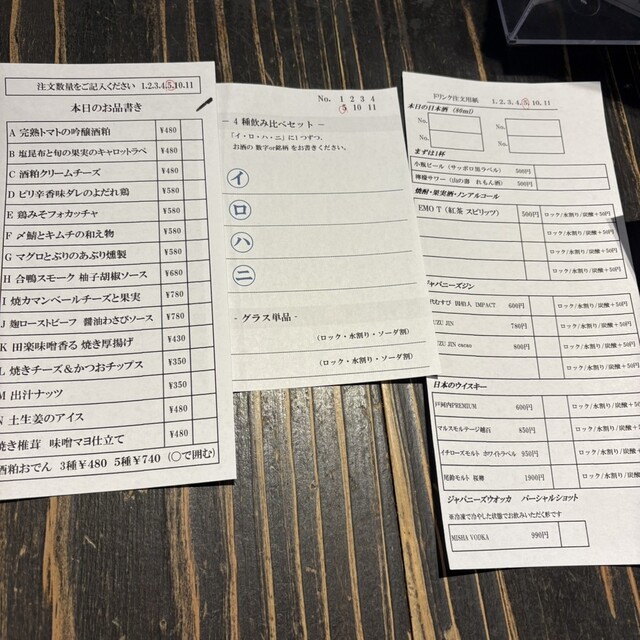 注文数量をご記入ください 1.2.3.4.5.10.11
本日のお品書き
A 完熟トマトの吟醸酒粕 ¥480
B 塩昆布と旬の果実のキャロットラペ ¥480
C 酒粕クリームチーズ ¥480
D ピリ辛香味ダレのよだれ鶏 ¥580
E 鶏みそフォカッチャ ¥580
F 〆鯖とキムチの和え物 ¥580
G マグロとぶりのあぶり燻製 ¥580
H 合鴨スモーク 柚子胡椒ソース ¥680
I 焼カマンベールチーズと果実 ¥780
J 麹ローストビーフ 醤油わさびソース ¥780
K 田楽味噌香る 焼き厚揚げ ¥430
L 焼きチーズ&かつおチップス ¥350
M 出汁ナッツ ¥350
N 土生姜のアイス ¥480
焼き椎茸 味噌マヨ仕立て ¥480
酒粕おでん 3種¥480 5種¥740 (〇で囲む)
No. 1 2 3 4
5 10 11
- 4種飲み比べセット -
「イ・ロ・ハ・ニ」に1つずつ、
お酒の 数字or銘柄 をお書きください。
イ
ロ
ハ
ニ
- グラス単品 -
(ロック・水割り・ソーダ割)
(ロック・水割り・ソーダ割)
ドリンク注文用紙 1, 2, 3, 4, 5, 10, 11
本日の日本酒 (80ml)
No. No.
No. No.
まずは1杯
小瓶ビール (サッポロ黒ラベル) 500円
檸檬サワー (山の游 れもん酒) 500円
焼酎・果実酒・ノンアルコール
EMO T (紅茶 スピリッツ) 500円 ロック/水割り/炭酸+50円
ロック/水割り/炭酸+50円
ロック/水割り/炭酸+50円
ロック/水割り/炭酸+50円
ジャパニーズジン
IMPACT 600円 ロック/水割り/炭酸+50円
YUZU JIN 780円 ロック/水割り/炭酸+50円
YUZU JIN cacao 800円 ロック/水割り/炭酸+50円
ロック/水割り/炭酸+50円
日本のウイスキー
戸河内PREMIUM 600円 ロック/水割り/炭酸+50円
マルスモルテージ越百 850円 ロック/水割り/炭酸+50円
イチローズモルト ホワイトラベル 950円 ロック/水割り/炭酸+50円
尾鈴モルト 桜樽 1900円 ロック/水割り/炭酸+50円
ジャパニーズウオッカ パーシャルショット
※冷凍で冷やした状態でお飲みいただく形です
MISHA VODKA 990円